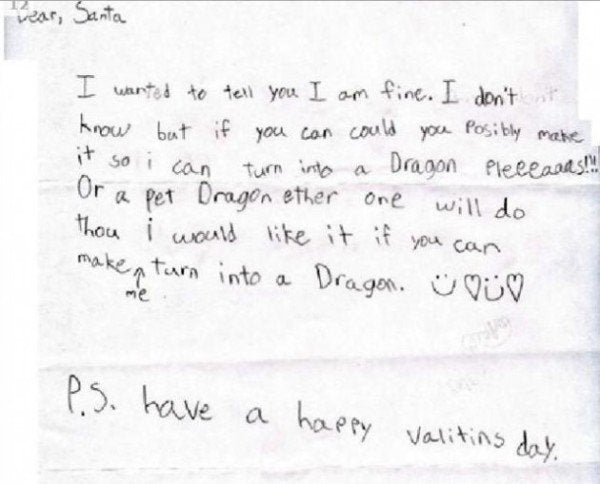 Dear, Santa
I wanted to tell you I am fine. I don't
know but if you can could you Posibly make
it so i can turn into a Dragon Pleeeaaas!!!
Or a pet Dragon ether one will do
thou i would like it if you can
make me turn into a Dragon. ü♡ü♡
P.S. have a happy Valitins day.